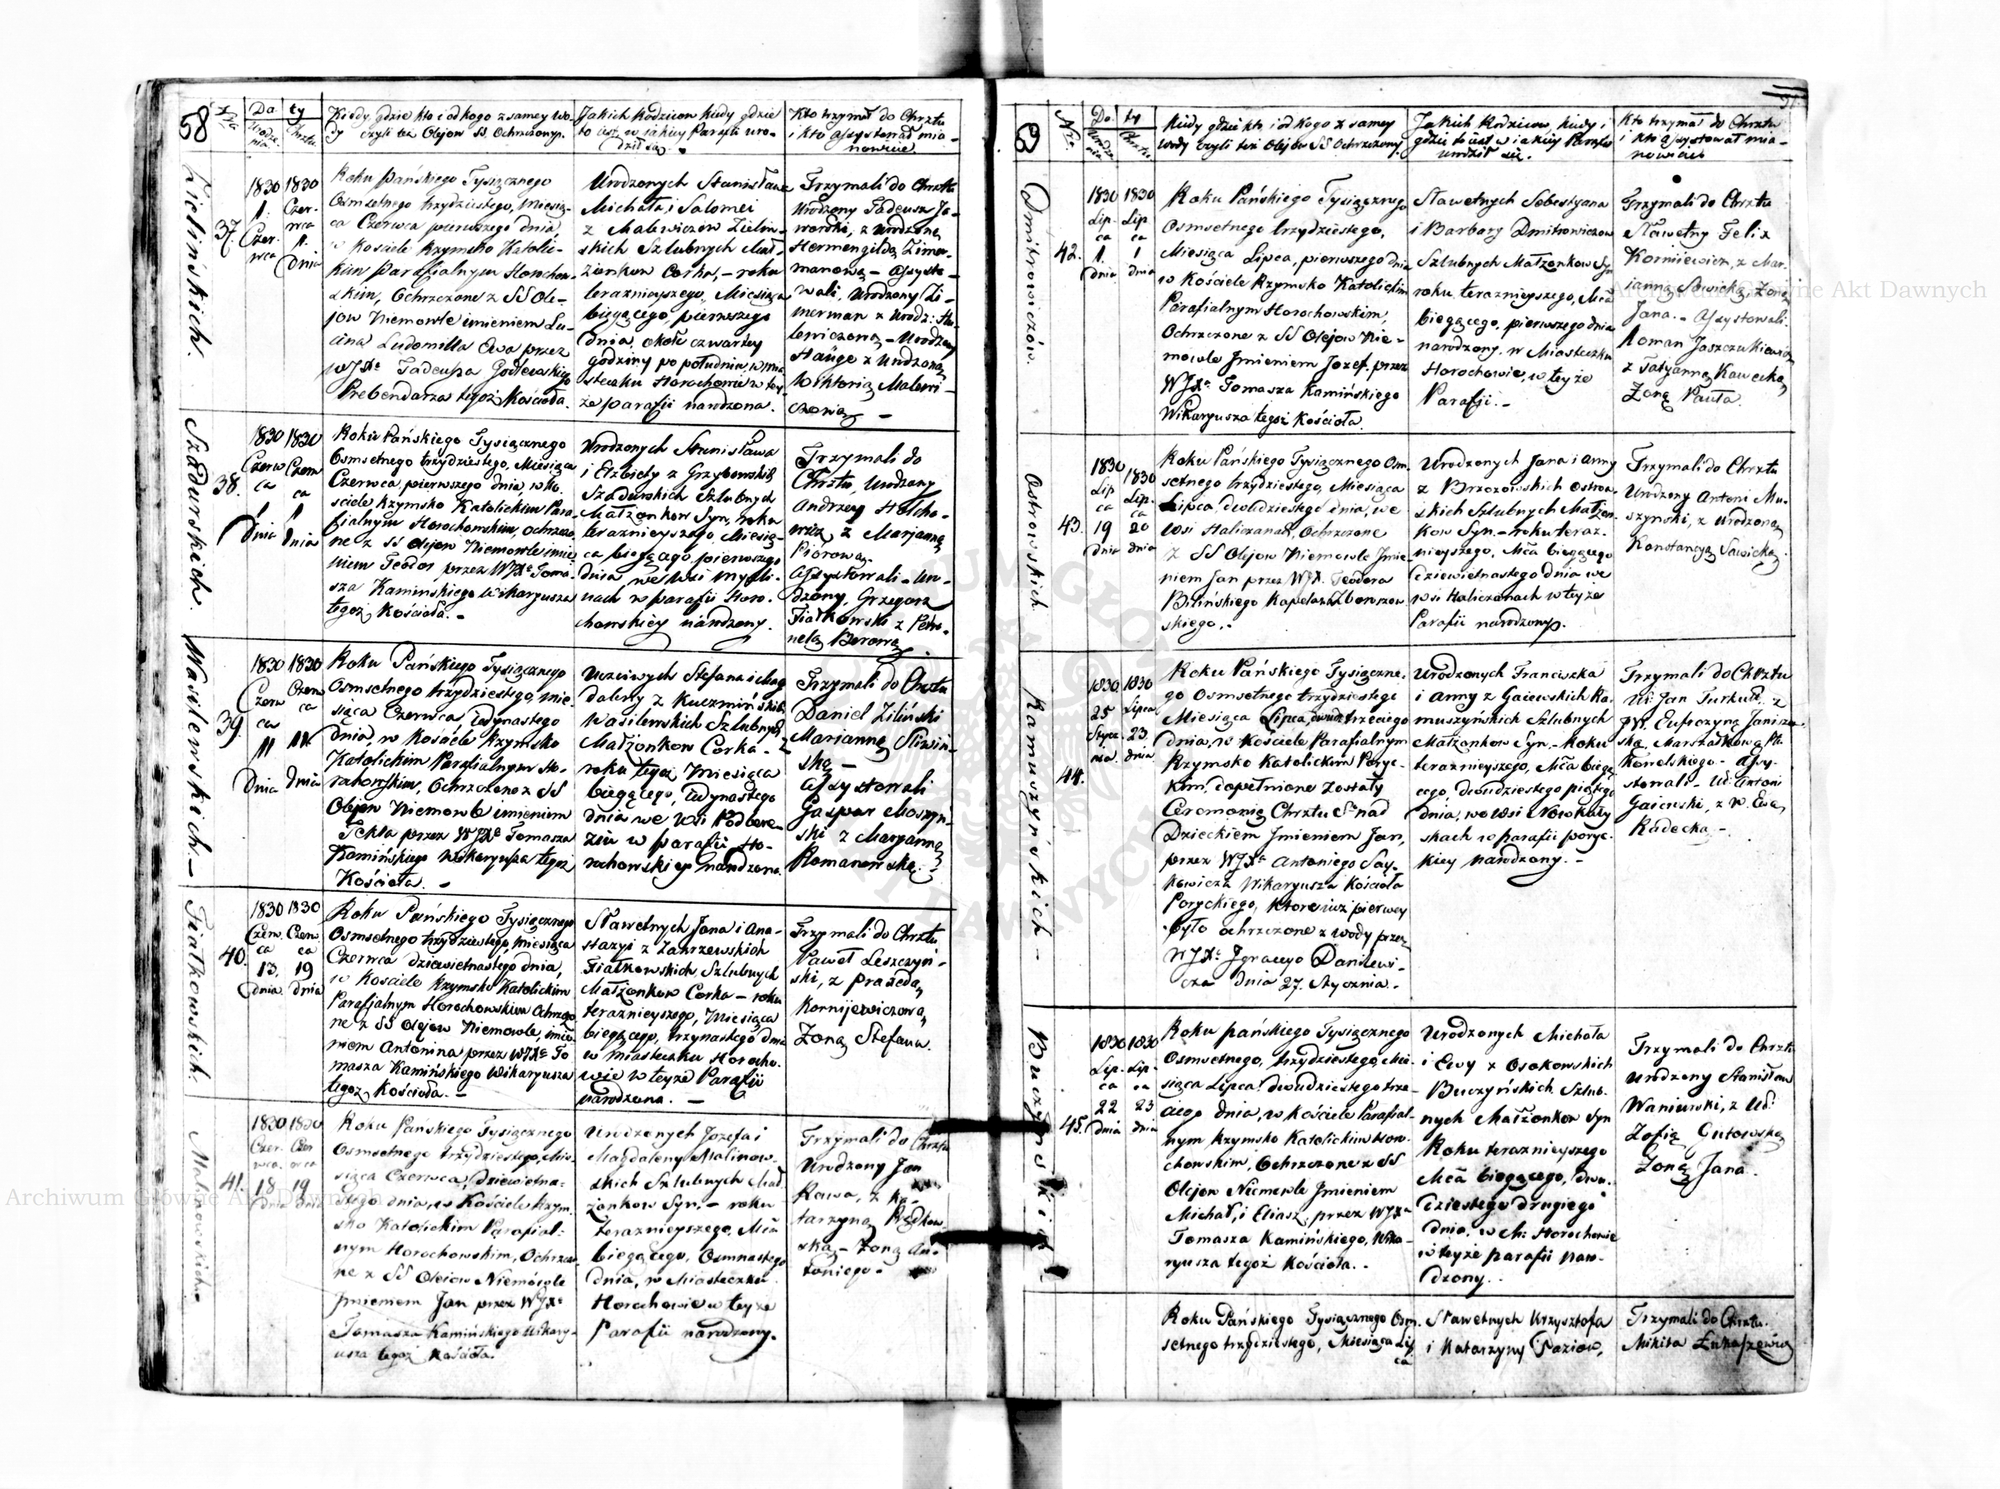 58
Nro
Da ty
Urodze-
nia
Chrztu
Kiedy, gdzie kto i od kogo z samey wo-
dy czyli też Olejow SS. Ochrzczony.
Jakich Rodzicow kiedy gdzie
to iest w iakiey Parafii uro-
dził się.
Kto trzymał do Chrztu
i kto assystował mia-
nowicie
Zielińskich.
37.
1830
1.
Czer-
wca
1830
Czer-
wca
1.
dnia
Roku Pańskiego Tysiącznego
Osmsetnego trzydziestego, Miesią-
ca Czerwca pierwszego dnia
w Kościele Rzymsko Katolic-
kim Parafialnym Horochow-
skim, Ochrzczone z SS Ole-
jow Niemowle imieniem Lu-
cina Ludomilla Ewa przez
WJXa Tadeusza Godlewskiego
Prebendarza tegoż Kościoła.
Urodzonych Stanisława
Michała, i Salomei
z Malewiczow Zielin-
skich Szlubnych Mał-
żonkow Corka, - roku
teraznieyszego, Miesiąca
biegącego, pierwszego
dnia, około czwartey
godziny po południu, w mia-
steczku Horochowie w tey-
że parafii narodzona.
Trzymali do Chrztu
Urodzony Tadeusz Ja-
wordki, z Urodzoną
Hermengildą Zimer-
manową - Assysto-
wali, Urodzony Zi-
merman z Urodz:
- Urodzony
Hauge z Urodzoną
Wiktorią Malewi-
czową -
Szadurskich.
38.
1830
Czerw
ca
1
dnia
1830
Czerw
ca
1
dnia
Roku Pańskiego Tysiącznego
Osmsetnego trzydziestego, Miesiąca
Czerwca, pierwszego dnia, w Ko-
sciele Rzymsko Katolickim Para-
fialnym Horochowskim, Ochrzczo-
ne z SS Olejow Niemowle imie-
niem Teodor przez WJXa Toma-
sza Kamińskiego Wikaryusza
tegoż Kościoła. -
Urodzonych Stanisława
i Elżbiety z Grzybowskich
Szadurskich Szlubnych
Małżonkow Syn, roku
teraznieyszego, Miesią-
ca biegącego pierwszego
dnia, we Wsi Mysli-
nach w parafii Horo-
chowskiey narodzony.
Trzymali do
Chrztu, Urodzony
Andrzey Hulcho-
wicz z Marjanną
Piórową.
Assystowali - Uro-
dzony, Grzegorz
Fiałkowski z Petro-
nelą Berową.
Wasilewskich. -
39.
1830
Czerw
ca
11
dnia
1830
Czerw
ca
11.
dnia
Roku Pańskiego Tysiącznego
Osmsetnego trzydziestego, mie-
siąca Czerwca, Jedynastego
dnia, w Kościele Rzymsko
Katolickim Parafialnym Ho-
rochowskim, Ochrzczone z SS
Olejow Niemowle imieniem
Tekla przez WJXa Tomasza
Kamińskiego Wikaryusza tegoż
Kościoła. -
Uczciwych Stefana i Mag
daleny z Kuczmińskich
Wasilewskich Szlubnych
Małżonkow Corka -
roku tegoż, Miesiąca
biegącego, Jedynastego
dnia we Wsi Podbere-
ziu w parafii Ho-
rochowskiey narodzona.
Trzymali do Chrztu
Daniel Ziliński
Marjanną Sliwin-
ską -
Assystowali
Gaspar Moszyń-
ski z Maryanną
Romanowską.
Fiałkowskich.
40.
1830
Czerw.
ca
13.
dnia
1830
Czerw.
ca
19
dnia
Roku Pańskiego Tysiącznego
Osmsetnego trzydziestego, miesiąca
Czerwca dziewietnastego dnia,
w Kościele Rzymsko Katolickim
Parafialnym Horochowskim Ochrzczo-
ne z SS Olejow Niemowle, imie-
niem Antonina przez WJXa To
masza Kamińskiego Wikaryusza
tegoż Kościoła. -
Sławetnych Jana i Ana-
stazyi z Zakrzewskich
Fiałkowskich, Szlubnych
Małżonkow Corka - roku
teraznieyszego, Miesiąca
biegącego, trzynastego dnia
w miasteczku Horocho-
wie w teyże Parafii
narodzona. -
Trzymali do Chrztu
Paweł Leszczyń-
ski, z Praxedą
Kornijewiczową
Zoną Stefana.
Malinowskich.
41.
1830
Czer-
wca.
18
dnia
1830
Czer
wca
19
dnia
Roku Pańskiego Tysiącznego
Osmsetnego trzydziestego, Mie-
siąca Czerwca, dziewietna-
stego dnia, w Kościele Rzym-
sko Katolickim Parafial-
nym Horochowskim, Ochrzczo-
ne z SS Olejow Niemowle
Imieniem Jan przez WJXa
Tomasza Kamińskiego Wikary-
usza tegoż Kościoła.
Urodzonych Jozefa i
Magdaleny Malinow-
skich Szlubnych Mał
żonkow Syn. - roku
teraznieyszego, Mca
biegącego, Osmnastego
dnia, w Miasteczku
Horochowie w teyże
Parafii narodzony.
Trzymali do Chrztu
Urodzony Jan
Rawa, z Ka-
tarzyną Redkow-
ską - Zoną An-
toniego -
Nro
Da ty
Urodze
nia
Chrztu
Kiedy gdzie kto i od kogo z samey
wody czyli też Olejow SS Ochrzczony.
Jakich Rodzicow, kiedy i
gdzie to iest w iakiey Parafii
urodził się.
Kto trzymał do Chrztu
i kto assystował mia-
nowicie
Dmitrowiczów.
42.
1830
Lip-
ca
1.
dnia
1830
Lip
ca
1
dnia
Roku Pańskiego Tysiącznego
Osmsetnego trzydziestego,
Miesiąca Lipca, pierwszego dnia
w Kościele Rzymsko Katolickim
Parafialnym Horochowskim,
Ochrzczone z SS Olejow Nie-
mowle Imieniem Jozef, przez
WJXa Tomasza Kamińskiego
Wikaryusza tegoż Kościoła.
Sławetnych Sebestyana
i Barbary Dmitrowiczow
Szlubnych Małżonkow Syn
roku teraznieyszego, Mca
biegącego, pierwszego dnia
narodzony w Miasteczku
Horochowie, w teyże
Parafii. -
Trzymali do Chrztu
Sławetny Felix
Korniewicz, z Mar-
janną Sawicką, Zoną
Jana. - Assystowali
Roman Jaszczukiewicz
z Tatyanną Kawecką,
Zoną Pawła.
Ostrowskich
43.
1830
Lip
ca
19
dnia
1830
Lip-
ca
20
dnia
Roku Pańskiego Tysiącznego Osm-
setnego trzydziestego, Miesiąca
Lipca, dwudziestego dnia, we
Wsi Haliczanach, Ochrzczone
z SS Olejow Niemowle Imie-
niem Jan przez WJX. Teodora
Bilińskiego Kapelana Zborzow-
skiego. -
Urodzonych Jana i Anny
z Brzozowskich Ostrow-
skich Szlubnych Małżon-
kow Syn. - roku teraz-
nieyszego, Mca biegącego
dziewietnastego dnia we
wsi Haliczanach w teyże
Parafii narodzony.
Trzymali do Chrztu
Urodzony Antoni Mu-
szynski, z Urodzoną
Konstancyą Sawicką.
Ramuszyńskich -
44.
1830
25
Stycz
nia
1830
Lipca
23
dnia
Roku Pańskiego Tysiączne-
go Osmsetnego trzydziestego
Miesiąca Lipca, dwudz: trzeciego
dnia, w Kościele Parafialnym
Rzymsko Katolickim Poryc-
kim, dopełnione zostały
Ceremonię Chrztu Sgo nad
Dzieckiem Imieniem Jan,
przez WJXa Antoniego Say-
kowicza Wikaryusza Kościoła
Poryckiego, ktore iuż pierwey
było ochrzczone z wody przez
WJXa Ignacego Danilewi-
cza dnia 27. Stycznia. -
Urodzonych Franciszka
i Anny z Gaiewskich Ra-
muszyńskich Szlubnych
Małżonkow Syn. - Roku
teraznieyszego, Mca biegą-
cego, dwudziestego piątego
dnia, we Wsi Nowokąty
skach w parafii poryc-
kiey narodzony. -
Trzymali do Chrztu
Ur: Jan Turkuł z
Eufrozyną Janisze
ską, Marszałkową Pt.
Assy-
stowali - Ud: Antoni
Gaiewski, z W. Ewą,
Radecką. -
Buczyńskich
45.
1830
Lip-
ca
22
dnia
1830
Lip-
ca
23
dnia
Roku pańskiego Tysiącznego
Osmsetnego, trzydziestego, Mie-
siąca Lipca dwudziestego trze-
ciego dnia, w kościele Parafial-
nym Rzymsko Katolickim Horo-
chowskim, Ochrzczone z SS
Olejow Niemowle Imieniem
Michał, i Eliasz, przez WJXa
Tomasza Kamińskiego, Wika-
ryusza tegoż Kościoła. -
Urodzonych Michała
i Ewy z Osokowskich
Buczyńskich Szlub-
nych Małżonkow Syn
Roku teraznieyszego
Mca biegącego, dwu-
dziestego drugiego
dnia, w M: Horochowie
w teyże parafii naro-
dzony. -
Trzymali do Chrztu
Urodzony Stanisław
Waniewski, z Ud:
Zofią Gutowską
Zoną Jana.
Roku Pańskiego Tysiącznego Osm-
setnego trzydziestego, Miesiąca Lip
ca
Sławetnych Krzysztofa
i Katarzyny Paziow,
Trzymali do Chrztu.
Mikita Łukaszewicz
Archiwum Główne Akt Dawnych
Archiwum Główne Akt Dawnych